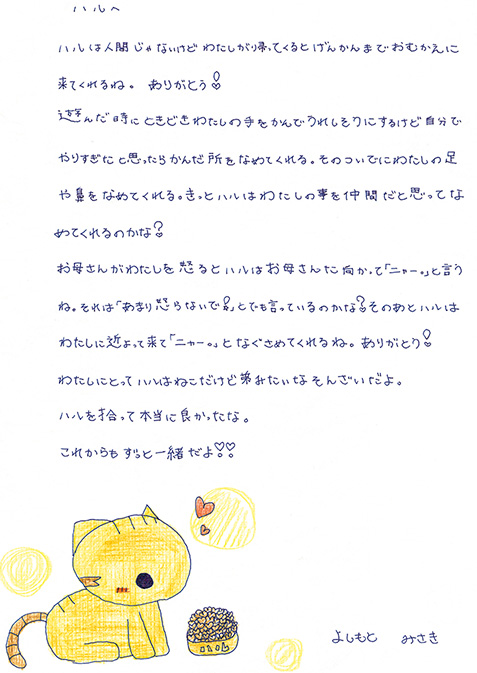 ハルへ
ハルは人間じゃないけどわたしが帰ってくるとげんかんまでおむかえに
来てくれるね。ありがとう!
遊んだ時にときどきわたしの手をかんでうれしそうにするけど自分で
やりすぎたと思ったらかんだ所をなめてくれる。そのついでにわたしの足
や鼻をなめてくれる。きっとハルはわたしの事を仲間だと思ってな
めてくれるのかな?
お母さんがわたしを怒るとハルはお母さんに向かって「ニャー。」と言う
ね。それは「あまり怒らないで!」とでも言っているのかな?そのあとハルは
わたしに近よって来て「ニャー。」となぐさめてくれるね。ありがとう!
わたしにとってハルはねこだけど弟みたいなそんざいだよ。
ハルを拾って本当に良かったな。
これからもずっと一緒だよ♡♡
ハル
よしもと みさき